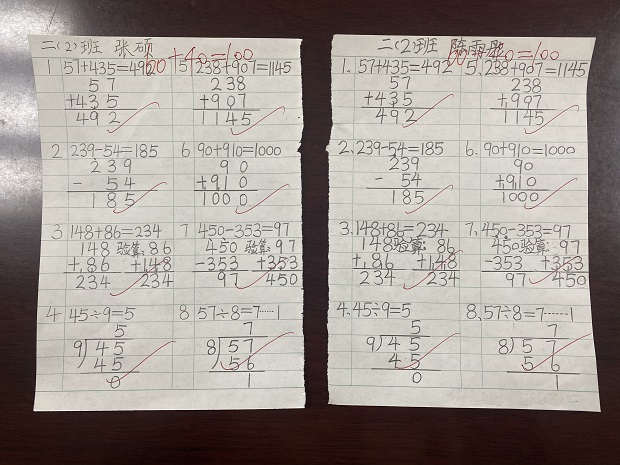 二(2)班 张硕
60+40=100
1 57+435=492
57
+435
492
2 239-54=185
239
- 54
185
3 148+86=234
148 验算: 86
+ 86 +148
234 234
4 45÷9=5
5
9 45
45
0
5 238+907=1145
238
+907
1145
6 90+910=1000
90
+910
1000
7 450-353=97
450 验算: 97
-353 +353
97 450
8 57÷8=7……1
7
8 57
56
1
二(2)班 陈雨
=100
1. 57+435=492
57
+435
492
2. 239-54=185
239
- 54
185
3. 148+86=234
148 验算: 86
+ 86 +148
234 234
4. 45÷9=5
5
9 45
45
0
5. 238+907=1145
238
+907
1145
6. 90+910=1000
90
+910
1000
7. 450-353=97
450 验算: 97
-353 +353
97 450
8. 57÷8=7……1
7
8 57
56
1